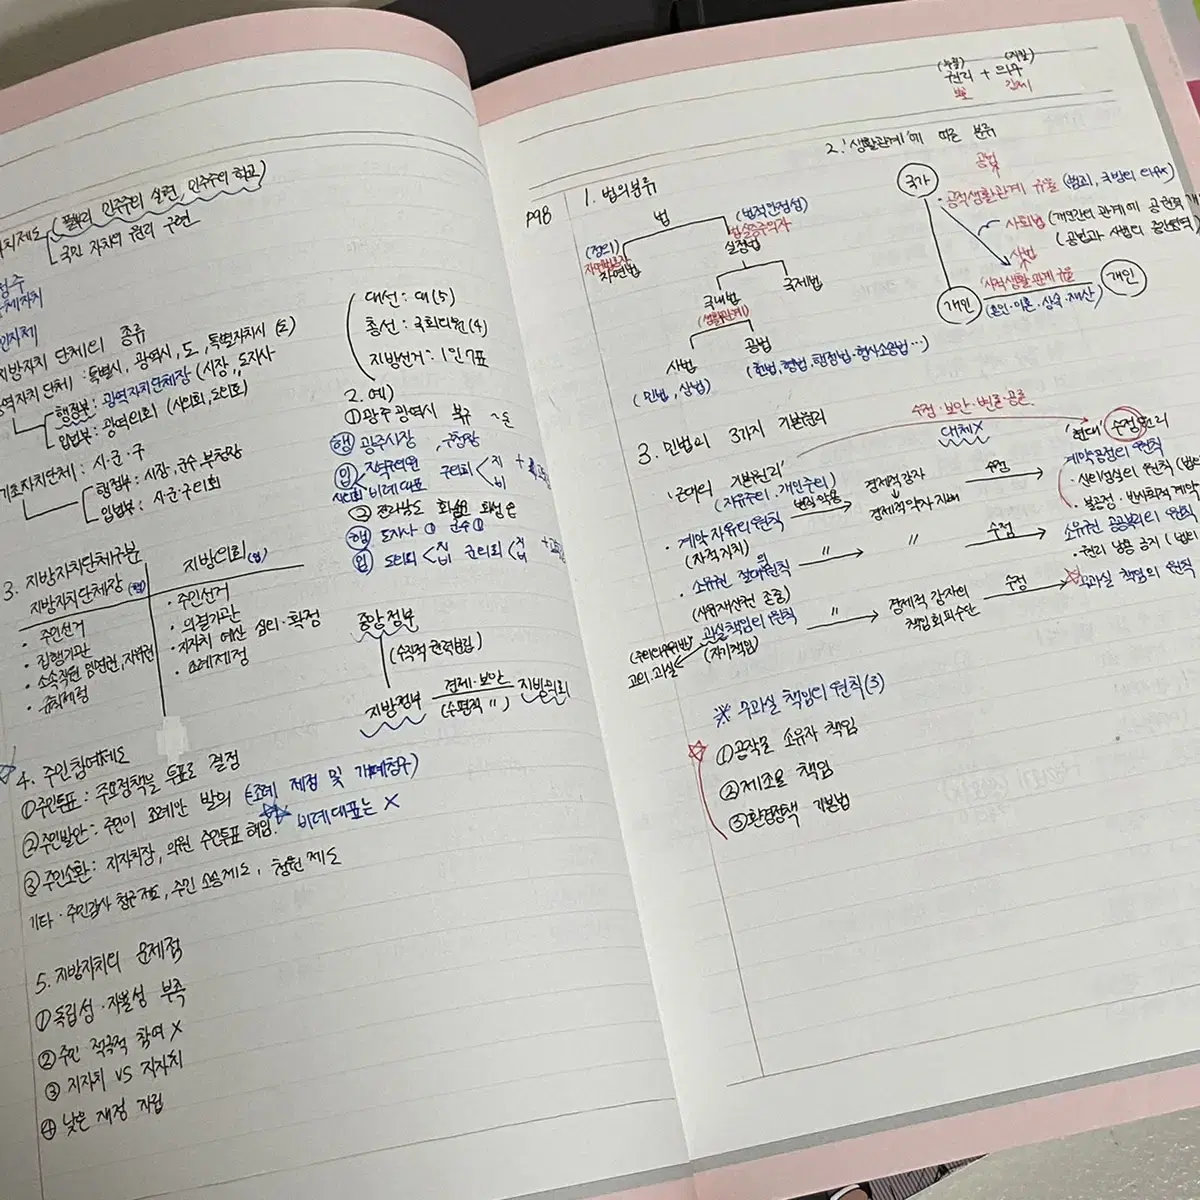 (풀뿌리 민주주의 실현, 민주주의 학교)
국민 자치의 원리 구현
지방자치 단체의 종류
광역자치 단체 : 특별시, 광역시, 도, 특별자치시 (도)
행정부: 광역자치단체장 (시장, 도지사
입법부: 광역의회 (시의회, 도의회)
기초자치단체 : 시·군·구
행정부: 시장, 군수, 부청장
입법부: 시·군·구의회
3. 지방자치단체구분
지방자치단체장 (행)
지방의회 (입)
· 주민선거
· 집행기관
· 소속직원 임면권, 지휘권
· 규칙제정
· 주민선거
· 의결기관
· 지자체 예산 심의·확정
· 조례제정
4. 주민참여제도
①주민투표 : 주요정책을 투표로 결정
②주민발안 : 주민이 조례안 발의 (조례 제정 및 개폐청구)
③주민소환: 지자체장, 의원 주민투표 해임. 비례대표는 X
기타 · 주민감사 청구제도, 주민 소송제도, 청원 제도
5. 지방자치의 문제점
①독립성·자율성 부족
②주민 적극적 참여 X
③ 지자체 vs 지자체
④ 낮은 재정 자립
대선 : 대(5)
총선 : 국회의원(4)
지방선거 : 1인 7표
2. 예)
①광주 광역시 북구
행 광주시장, 구청장
입 지역구의원 구의회 지 비
시의회 비례대표
② 전라남도 화순군 화순읍
행 도지사 ① 군수 ①
입 도의회 지 비 군의회 지 비
중앙정부
(수직적 권력분립)
지방정부
견제·보완
(수평적 〃)
지방의회
P98
1. 법의분류
법
(정의)
자연법론자
자연법
(법적안정성)
법실증주의자
실정법
국내법
(생활관계)
국제법
사법
(민법, 상법)
공법
(헌법, 형법, 행정법, 형사소송법…)
권리 + 의무
2. '생활관계'에 따른 분류
국가
공법
· 공적생활관계 규율 (범죄, 국방의 의무)
사회법 (개인간의 관계에 공권력 개
(공법과 사법의 중간영역)
사법
'사적생활관계 규율
(혼인·이혼·상속·재산)
개인
개인
3. 민법의 3가지 기본원리
수정·보완·변모·공존
대체X
'근대의 기본원리'
(자유주의·개인주의)
'현대' 수정원리
· 계약자유의원칙
(사적자치)
경제적강자
경제적약자 지배
수정
계약공정의 원칙
· 신의성실의 원칙
· 불공정·반사회적 계약
· 소유권 절대의원칙
(사유재산권 존중)
〃
〃
수정
소유권 공공복리의 원칙
· 권리 남용 금지
과실책임의 원칙
(자기책임)
고의·과실
〃
경제적 강자의
책임회피수단
수정
무과실 책임의 원칙
※ 무과실 책임의 원칙(3)
①공작물 소유자 책임
②제조물 책임
③환경정책 기본법